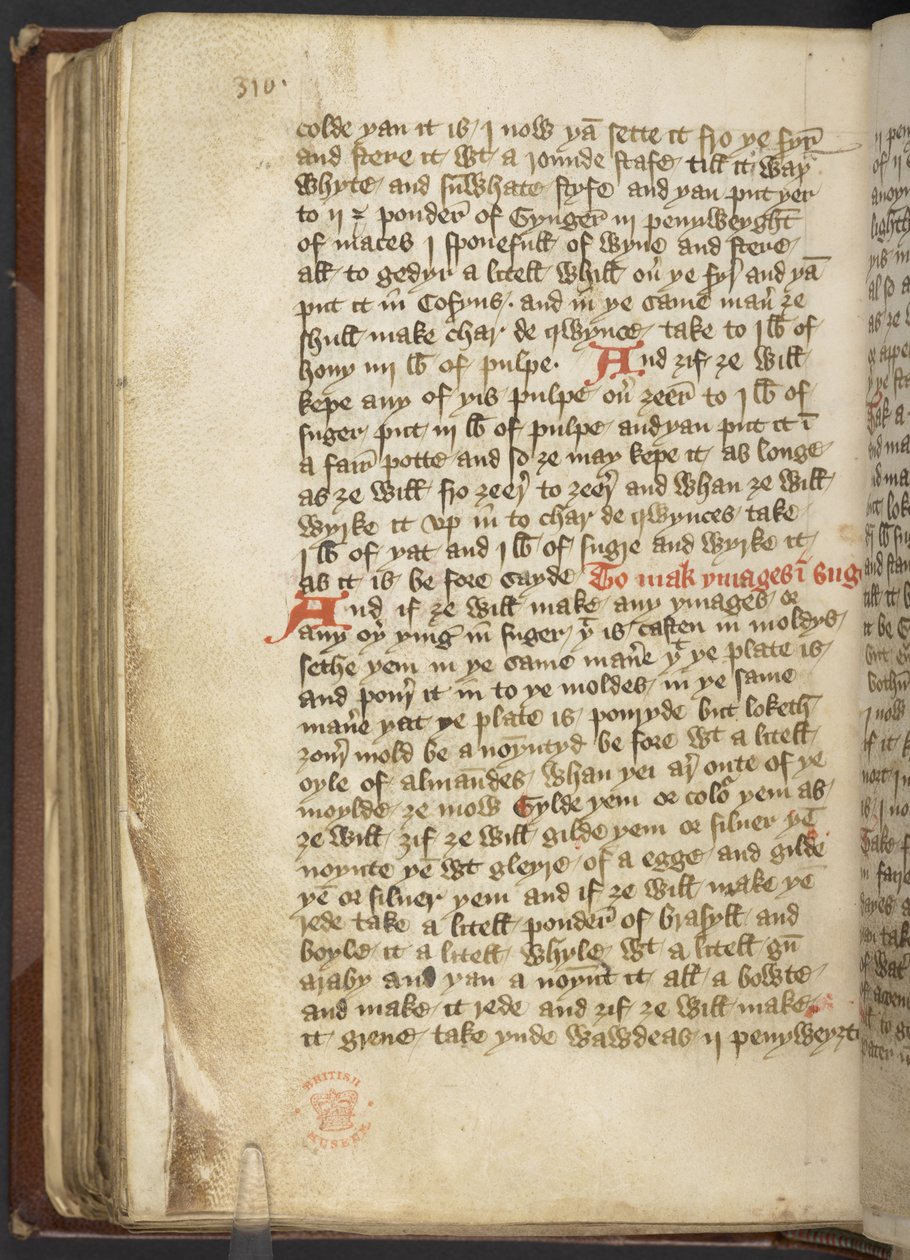 310.
colde yan it is, I now yā sette it fro ye fyr̄
and stere it, wt a rounde stafe, till it wax
whyte, and sūwhate styfe and yan put yer
to ii ℥ pouder̄ of Gynger̄ iii penyweyght
of maces I sponefull of wyne and stere,
all to gedyr a litell whill ou̾ ye fyr̾ and yā
put it in̄ Cofyns. and in̄ ye same man̾ ȝe
shull make char de qwynce, take to I lƀ of
hony iiii lƀ of pulpe. And ȝif ȝe will
kepe any of yis pulpe ou̾ ȝeer̄ to I lƀ of
suger put iii lƀ of pulpe and yan put it ī
a fair̄ potte and so ȝe may kepe it, as longe
as ȝe will fro ȝeer̾ to ȝeer̾ and whan ȝe will
wyrke it vp in̄ to char de qwynces take
I lƀ of yat and I lƀ of sugre and wyrke it
as it is be fore sayde, To mak ymages ī sug
And if ȝe will make, any ymages, or
any oy̾ ying̾ in̄ suger, yt is, casten in moldys,
sethe yem in ye same man̾e yt ye plate is,
and pour̾ it in̄ to ye moldes, in ye same
man̾e yat ye plate is, pouryde but loketh
ȝour̾ mold be a noȳntyd be fore wt a litell
oyle of almādes, whan yei ar̾ oute of ye
moylde, ȝe mow Gylde yem or color yem as
ȝe will, ȝif ȝe will gilde yem or siluer yē
noynte yē wt gleyre, of a egge, and gilde
yē or siluer yem and if ȝe will make yē
rede take a litell pouder̄ of brasyll and
boyle, it a litell whyle, wt a litell gū
araby and yan a noynt it all a bowte,
and make, it rede and ȝif ȝe will make,
it grene, take ynde wawdeas, ii penyweyȝt
BRITISH
MUSEUM